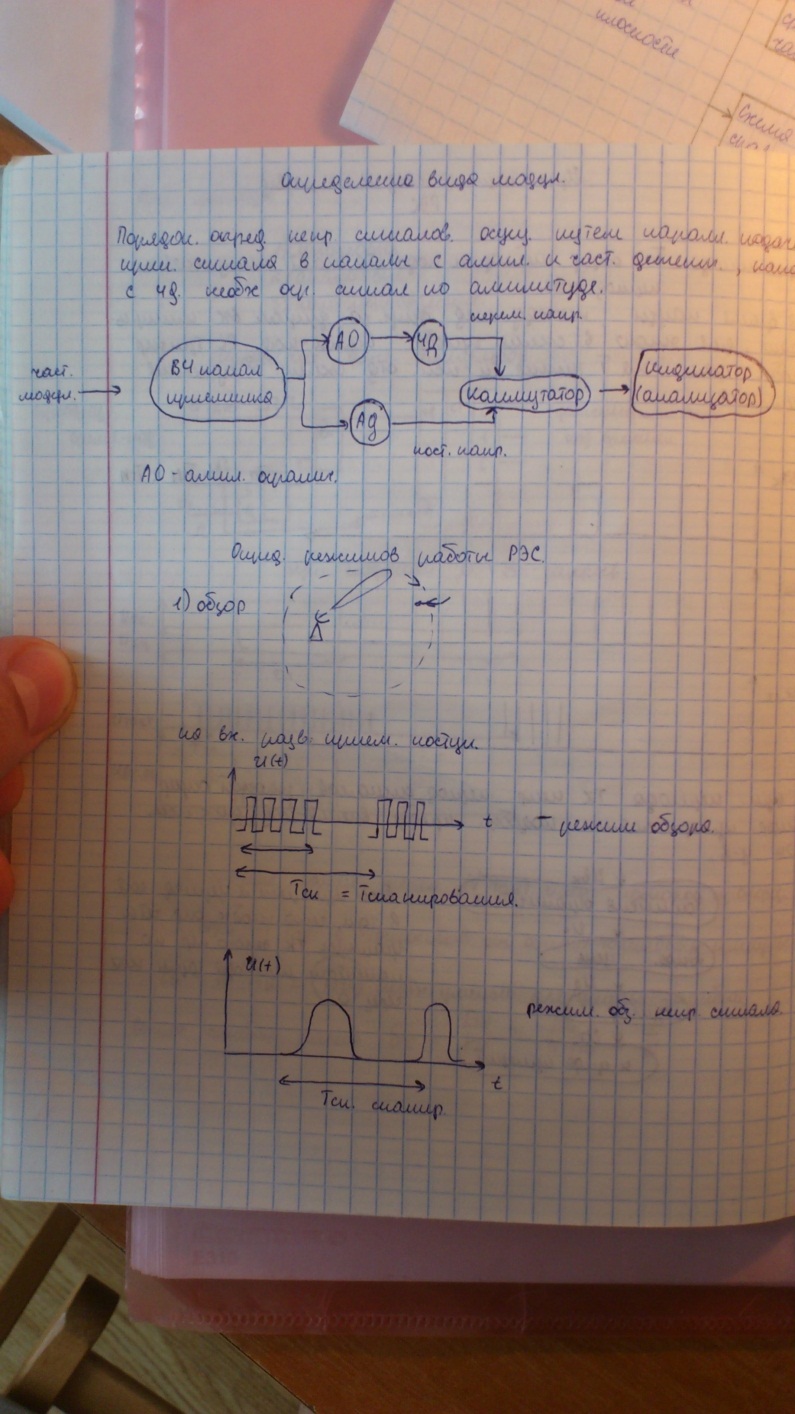 плоскости
схема
Определение вида модул.
Порядок. опред. непр сигналов. осущ. путем паралл. подач
прин. сигнала в каналы с ампл. и част. детект.,
с ЧД. необх огр. сигнал по амплитуде.
перем. напр.
АО
ЧД
част.
модул.
ВЧ канал
приемника
Коммутатор
Индикатор
(анализатор)
АД
пост. напр.
АО - ампл. огранич.
Опред. режимов работы РЭС.
1) обзор
на вх. разв. прием. поступ.
U(t)
t
- режим обзора.
Тск = Tсканирования.
U(t)
режим. обз. непр сигнала
t
Тск. сканир.